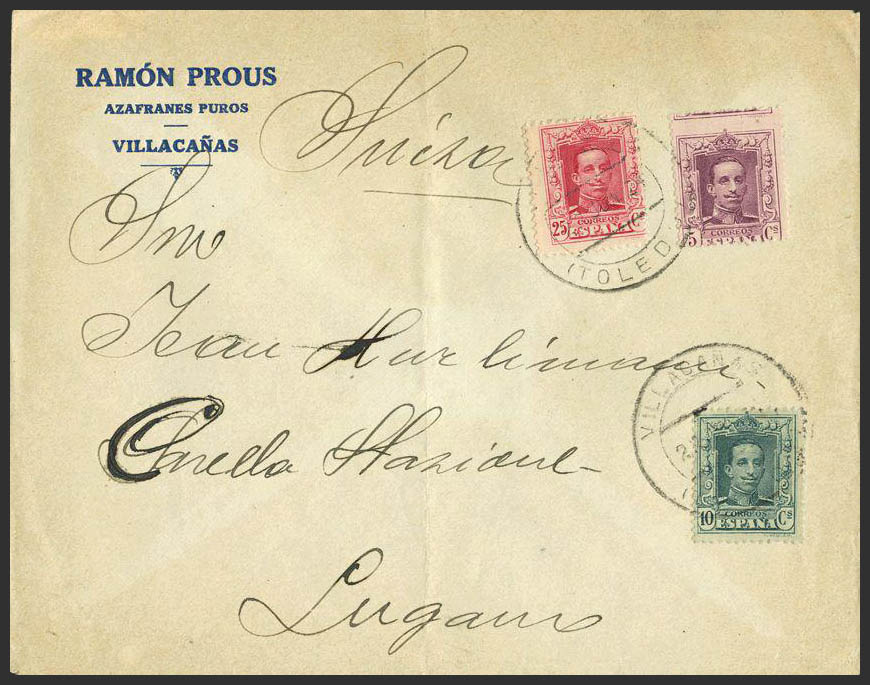 RAMÓN PROUS
AZAFRANES PUROS
VILLACAÑAS
Suiza
Snr
Jean Hurlimann
Lugano
25 Cs
CORREOS
ESPAÑA
(TOLEDO
5 Cs
CORREOS
ESPAÑA
VILLACAÑAS
10 Cs
CORREOS
ESPAÑA